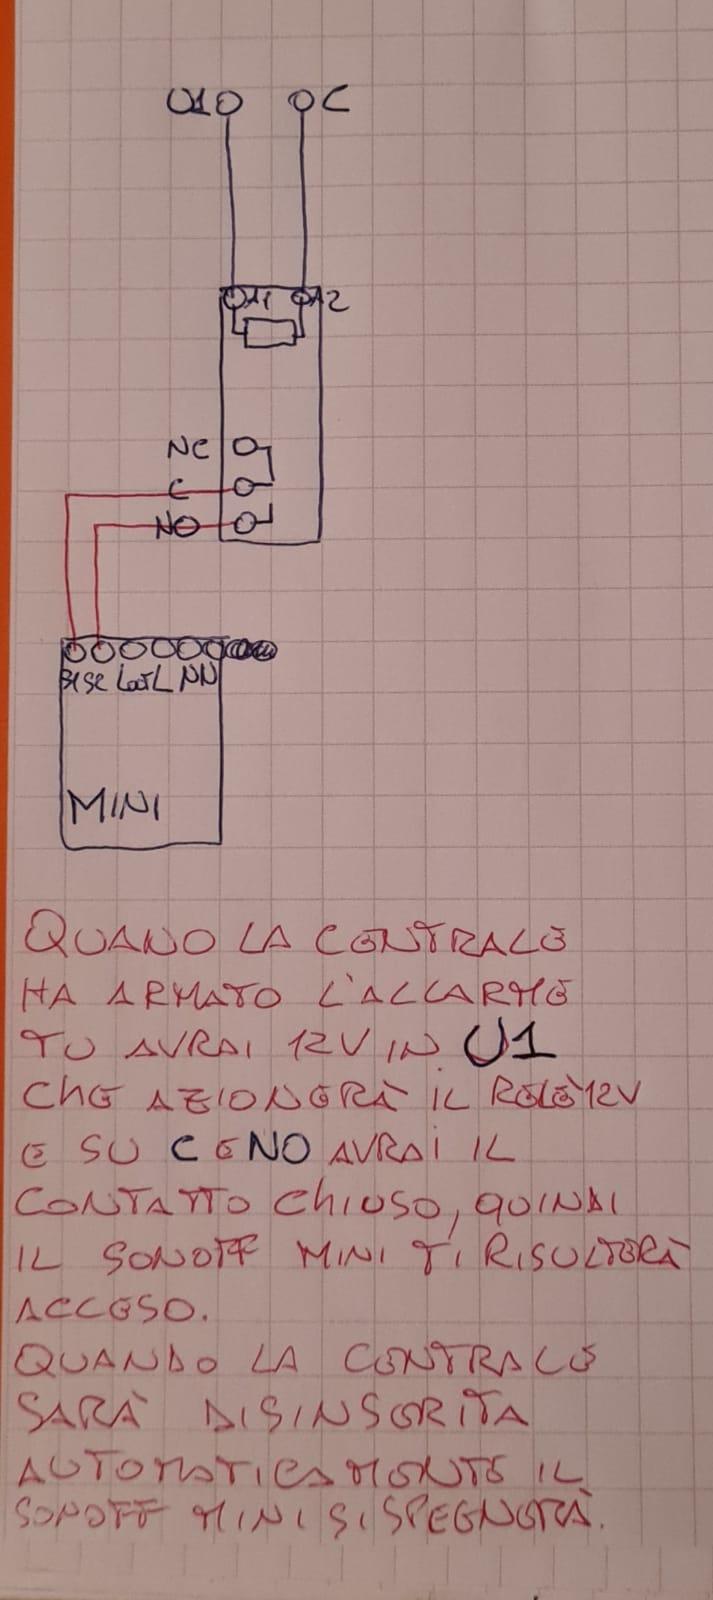 U1 C
A1 A2
NC
C
NO
S1 S2 Lout L N N
MINI
QUANDO LA CENTRALE
HA ARMATO L'ALLARME
TU AVRAI 12V IN U1
CHE AZIONERÀ IL RELÈ 12V
E SU C E NO AVRAI IL
CONTATTO CHIUSO, QUINDI
IL SONOFF MINI TI RISULTERÀ
ACCESO.
QUANDO LA CENTRALE
SARÀ DISINSERITA
AUTOMATICAMENTE IL
SONOFF MINI SI SPEGNERÀ.